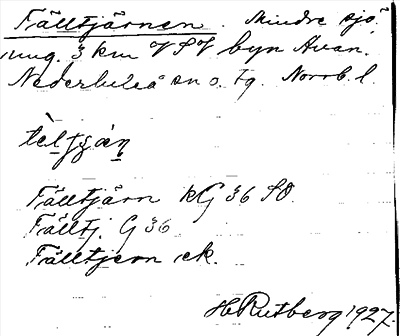 Fälltjärnen. Mindre sjö
ung. 3 km V SV byn Avan.
Nederluleå sn o. tg. Norrb. l.
Fälltjärn kG 36 SO
Fälltj. G 36
Fälltjern ek.
H Rutberg 1927.